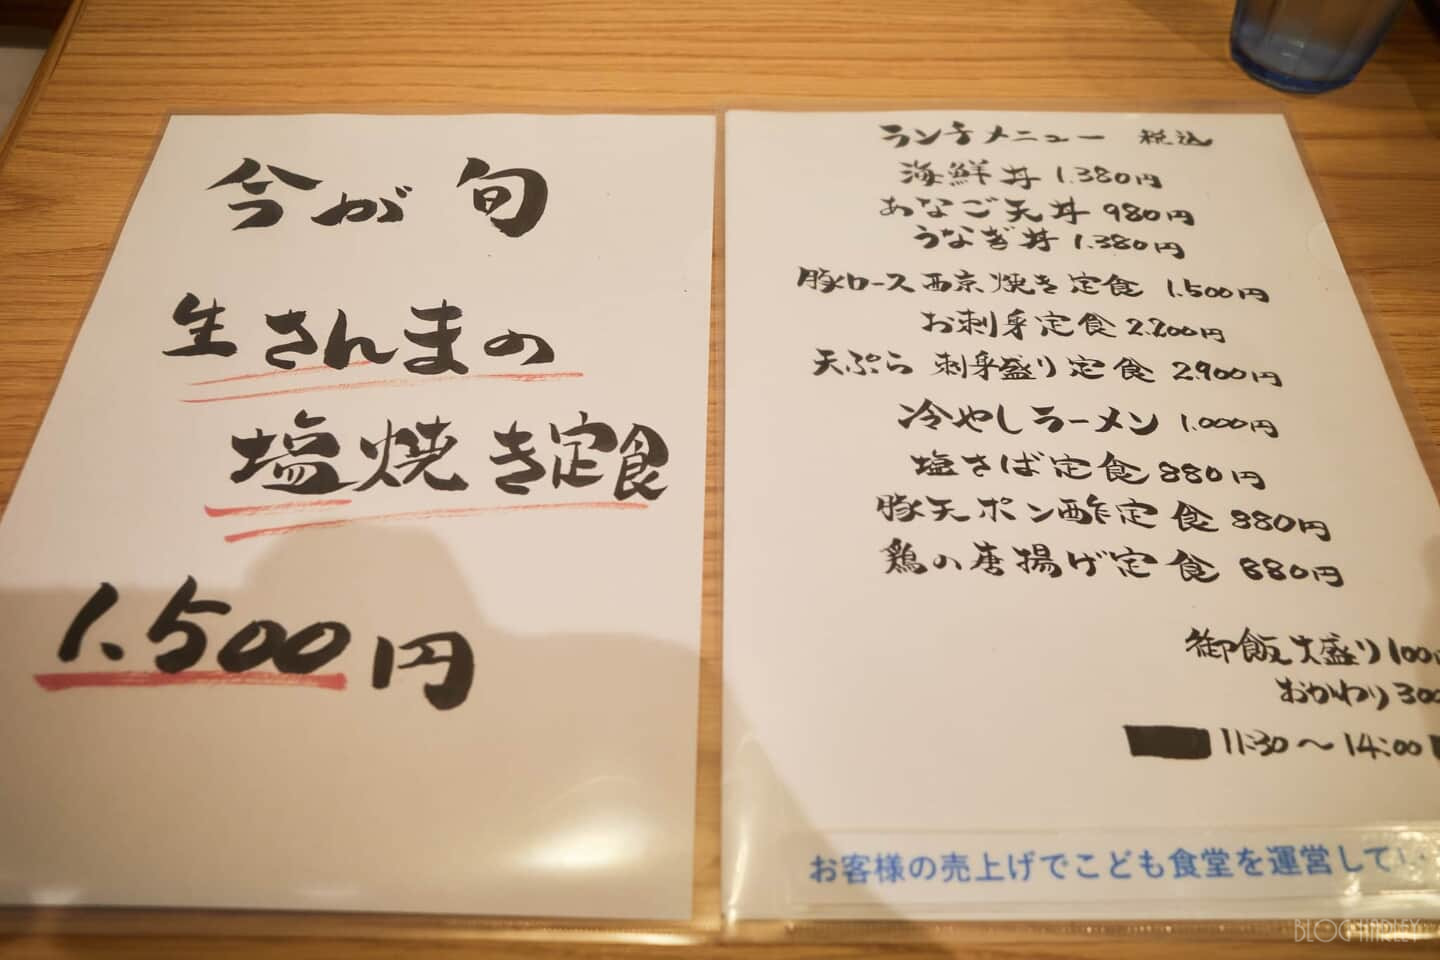 今が旬
生さんまの
塩焼き定食
1,500円
ランチメニュー 税込
海鮮丼 1.380円
あなご天丼 980円
うなぎ丼 1.380円
豚ロース西京焼き定食 1.500円
お刺身定食 2.200円
天ぷら 刺身盛り定食 2.900円
冷やしラーメン 1.000円
塩さば定食 880円
豚天ポン酢定食 880円
鶏の唐揚げ定食 880円
御飯大盛り100
おかわり300
11:30～14:00
お客様の売上げでこども食堂を運営してい
BLOG HARLEY